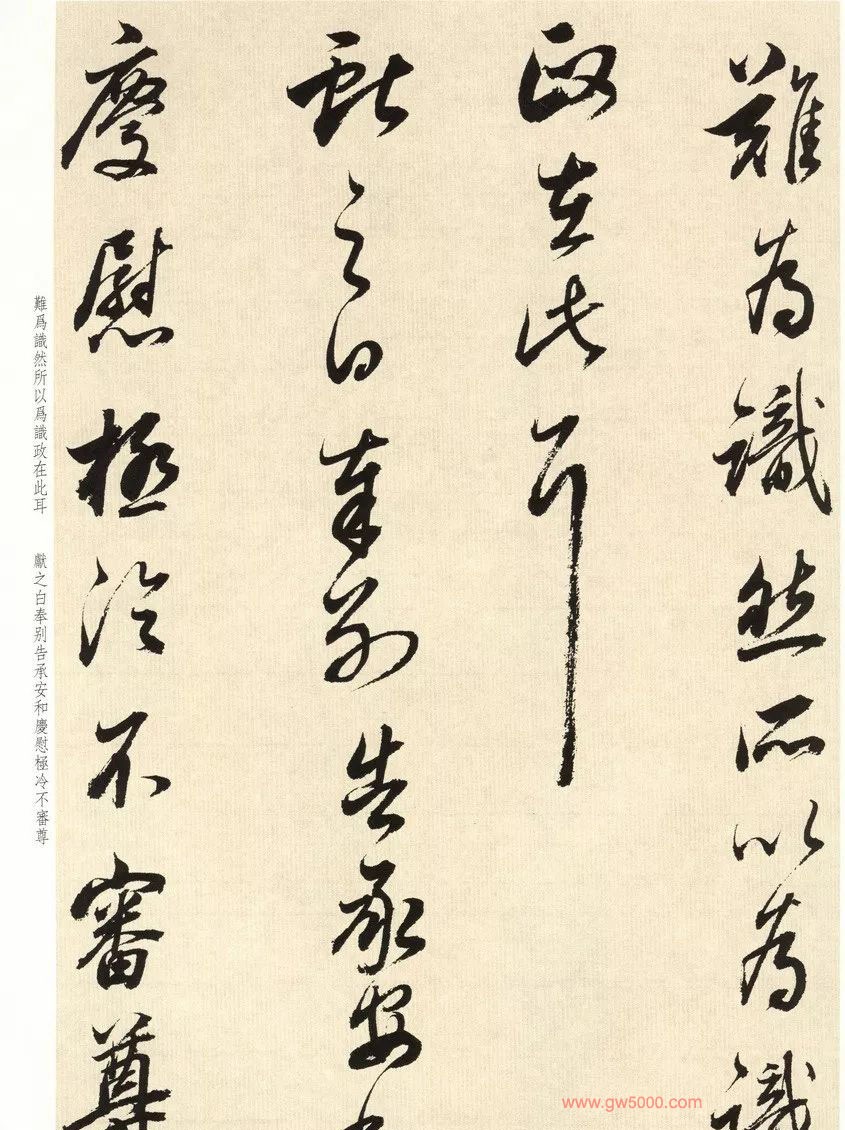 難為識然所以為識
政在此耳
獻之白奉別告承安
慶慰極冷不審尊
難爲識然所以爲識政在此耳 獻之白奉別告承安和慶慰極冷不審尊
www.gw5000.com